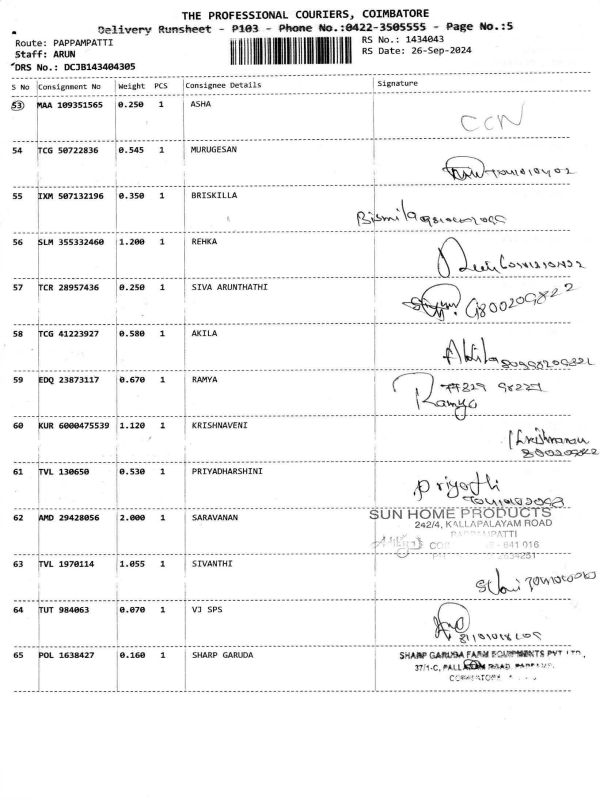 THE PROFESSIONAL COURIERS, COIMBATORE
Delivery Runsheet - P103 - Phone No.:0422-3505555 - Page No.:5
Route: PAPPAMPATTI
RS No.: 1434043
Staff: ARUN
RS Date: 26-Sep-2024
DRS No.: DCJB143404305
S No Consignment No Weight PCS Consignee Details Signature
53 MAA 109351565 0.250 1 ASHA
CCN
54 TCG 50722836 0.545 1 MURUGESAN
55 IXM 507132196 0.350 1 BRISKILLA
56 SLM 355332460 1.200 1 REHKA
57 TCR 28957436 0.250 1 SIVA ARUNTHATHI
9800209822
58 TCG 41223927 0.580 1 AKILA
Akila
59 EDQ 23873117 0.670 1 RAMYA
Ramya
60 KUR 6000475539 1.120 1 KRISHNAVENI
61 TVL 130650 0.530 1 PRIYADHARSHINI
62 AMD 29428056 2.000 1 SARAVANAN
SUN HOME PRODUCTS
242/4, KALLAPALAYAM ROAD
PAPPAMPATTI
641 016
63 TVL 1970114 1.055 1 SIVANTHI
64 TUT 984063 0.070 1 VJ SPS
65 POL 1638427 0.160 1 SHARP GARUDA
SHARP GARUDA FARM EQUIPMENTS PVT LTD.,
37/1-C, PALLAPALAYAM ROAD,
COIMBATORE